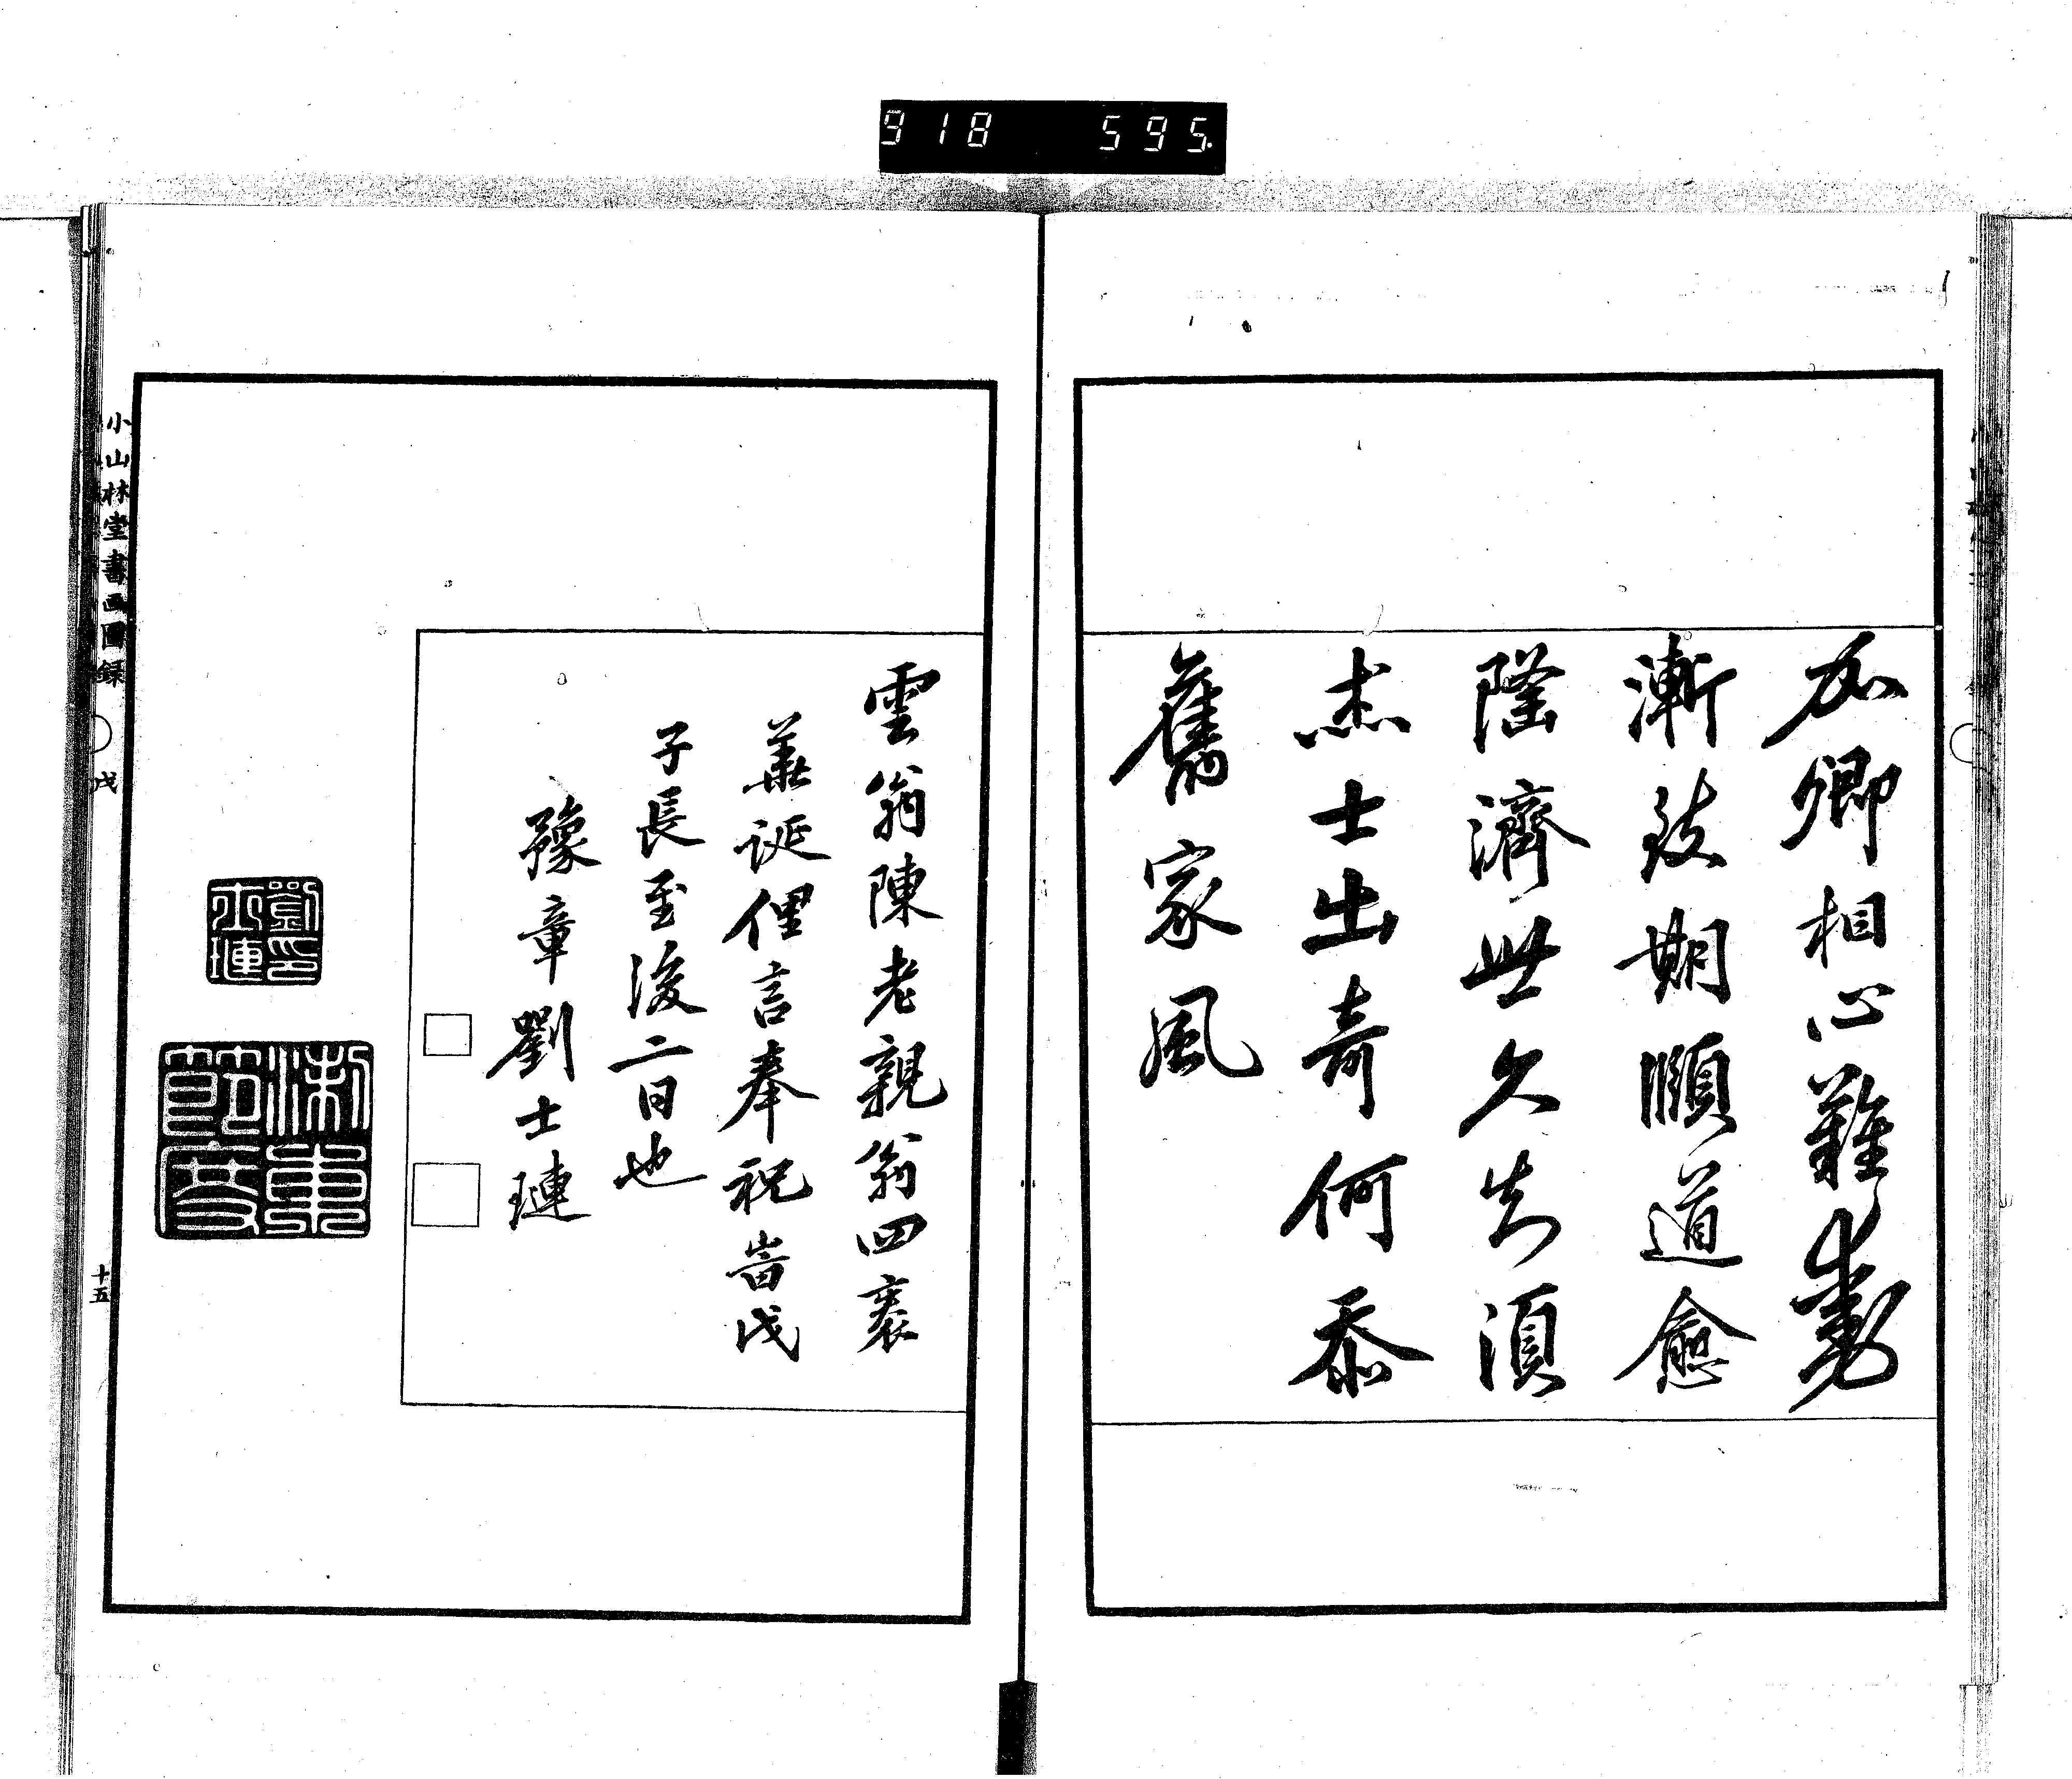 918 595.
為卿相心難動
漸致期頤道愈
隆濟世久知須
杰士出奇何忝
舊家風
雲翁陳老親翁四袠
華誕俚言奉祝峕戊
子長至後二日也
豫章劉士璉
劉印士璉
小山林堂書画圖録
戊
十五